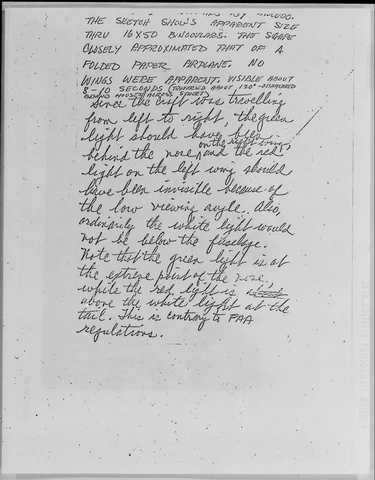 THE SKETCH SHOWS APPARENT SIZE
THRU 16X50 BINOCULARS. THE SHAPE
CLOSELY APPROXIMATED THAT OF A
FOLDED PAPER AIRPLANE. NO
WINGS WERE APPARENT. VISIBLE ABOUT
8-10 SECONDS (TRAVERSED ABOUT 120° - DISAPPEARED
BEHIND HOUSE ACROSS STREET)
Since the craft was travelling
from left to right, the green
light should have been
on the right wing,
behind the nose, and the red
light on the left wing should
have been invisible because of
the low viewing angle. Also,
ordinarily the white light would
not be below the fuselage.
Note that the green light is at
the extreme point of the nose,
while the red light is
above the white light at the
tail. This is contrary to FAA
regulations.